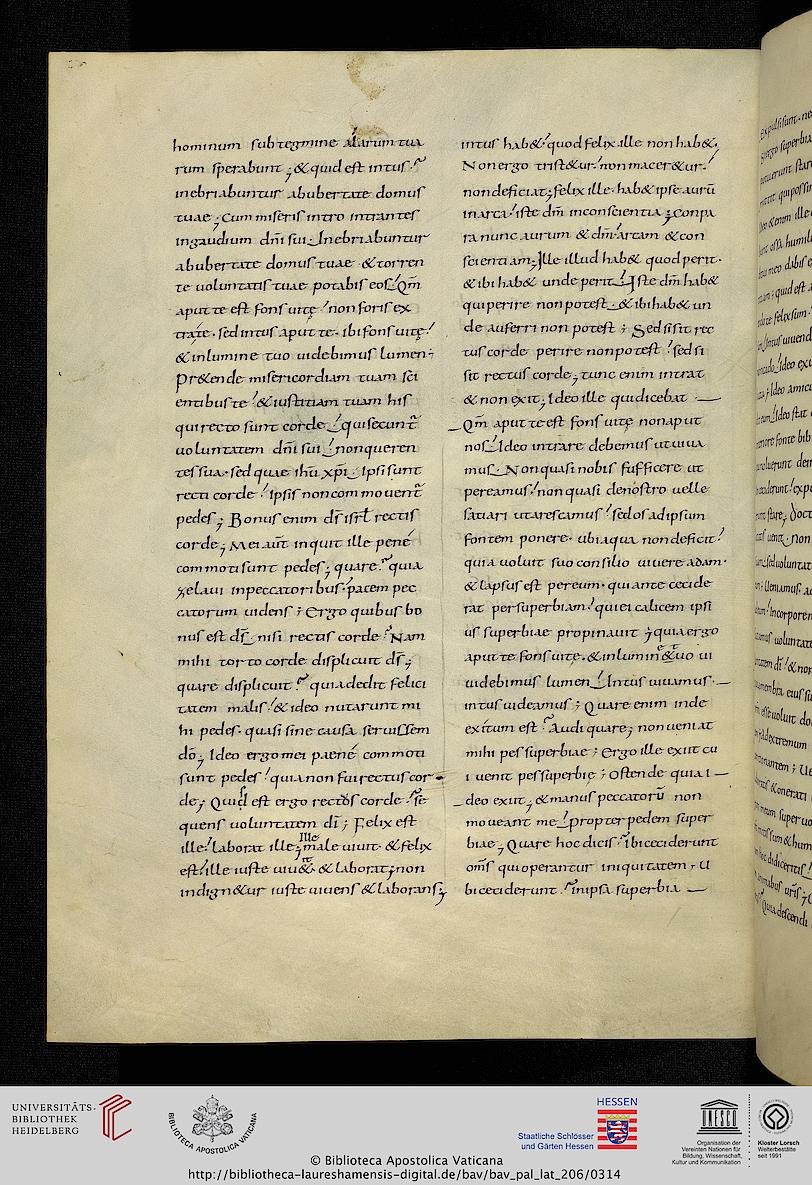 hominum sub tegmine alarum tua
rum sperabunt ; & quid est intus ?
inebriabuntur ab ubertate domus
tuae ; Cum miseris intro intrantes
in gaudium dñi sui . Inebriabuntur
ab ubertate domus tuae · & torren
te voluntatis tuae potabis eos . Qm̄
aput te est fons uitę / non foris ex
tra te · sed intus aput te · ibi fons uitę /
& in lumine tuo uidebimus lumen ;
Pr&ende misericordiam tuam sci
entibus te / & iustitiam tuam his
qui recto sunt corde / qui secunt̄
uoluntatem dñi sui / non queren
tes sua · sed quae ihū xpi . Ipsi sunt
recti corde / ipsis non commouent̄
pedes ; Bonus enim ds̄ isrl̄ rectis
corde ; Mei aut̄ inquit ille pene
commoti sunt pedes ; quare ? quia
zelaui in peccatoribus · pacem pec
catorum uidens ; Ergo quibus bo
nus est ds̄ nisi rectis corde ? Nam
mihi torto corde displicuit ds̄ ;
quare displicuit ? quia dedit felici
tatem malis / & ideo nutarunt mi
hi pedes · quasi sine causa seruissem
dō ; Ideo ergo mei paene commoti
sunt pedes / quia non fui rectus cor
de ; Quid est ergo rectus corde ? se
quens uoluntatem dī ; Felix est
ille / laborat ille ; Ille male uiuit · & felix
est / ille iuste uiu& · & laborat ; non
indign&ur iuste uiuens & laborans ;
intus hab& / quod felix ille non hab& ·
Non ergo trist&ur / non macer&ur /
non deficiat ; felix ille · hab& ipse aurū
in arca / iste dm̄ in conscientia ; Conpa
ra nunc aurum & dm̄ / arcam & con
scientiam ; Ille illud hab& quod perit ·
& ibi hab& unde perit . Iste dm̄ hab&
qui perire non potest · & ibi hab& un
de auferri non potest ; Sed si sit rec
tus corde perire non potest / sed si
sit rectus corde ; tunc enim intrat
& non exit ; Ideo ille qui dicebat
Qm̄ aput te est fons uitę non aput
nos . Ideo intrare debemus ut uiua
mus . Non quasi nobis sufficere ut
pereamus / non quasi de nostro uelle
satiari ut arescamus / sed os ad ipsum
fontem ponere · ubi aqua non deficit /
quia uoluit suo consilio uiuere adam ·
& lapsus est per eum · qui ante cecide
rat per superbiam / qui ei calicem ipsi
us superbiae propinauit ; quia ergo
aput te fons uitę · & in lumine tuo ui
uidebimus lumen . Intus uiuamus ·
intus uideamus ; Quare enim inde
exitum est ? Audi quare ; non ueniat
mihi pes superbiae ; Ergo ille exiit cu
i uenit pes superbie ; Ostende quia i
deo exiit ; & manus peccatorū non
moueant me . propter pedem super
biae ; Quare hoc dicis ? ibi ceciderunt
oms̄ qui operantur iniquitatem ; U
bi ceciderunt ? in ipsa superbia
UNIVERSITÄTS-
BIBLIOTHEK
HEIDELBERG
BIBLIOTHECA APOSTOLICA VATICANA
HESSEN
Staatliche Schlösser
und Gärten Hessen
UNESCO
Organisation der
Vereinten Nationen für
Bildung, Wissenschaft,
Kultur und Kommunikation
Kloster Lorsch
Welterbestätte
seit 1991
© Biblioteca Apostolica Vaticana
http://bibliotheca-laureshamensis-digital.de/bav/bav_pal_lat_206/0314